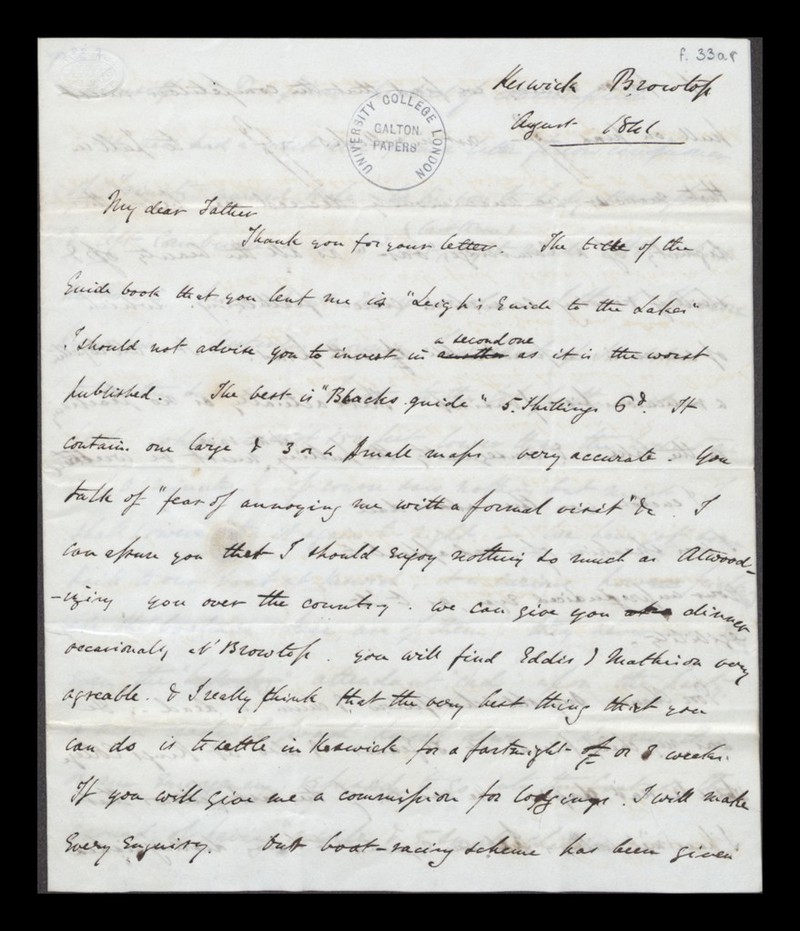 f. 33ar
Keswick Browtop
August 1841
UNIVERSITY COLLEGE LONDON
GALTON
PAPERS
My dear Father
Thank you for your letter. The title of the
Guide book that you lent me is "Leigh's Guide to the Lakes"
a second one
I should not advise you to invest in another as it is the worst
published. The best is "Blacks guide" 5. Shillings 6d. It
contains one large & 3 or 4 small maps very accurate. You
talk of "fear of annoying me with a formal visit" &c. I
can assure you that I should enjoy nothing so much as Atwood-
-izing you over the country. we can give you dinner
occasionally at Browtop. you will find Eddis & Mathison very
agreable. & I really think that the very best thing that you
can do is to settle in Keswick for a fortnight or weeks.
If you will give me a commission for lodgings. I will make
every enquiry. Our boat-racing scheme has been given